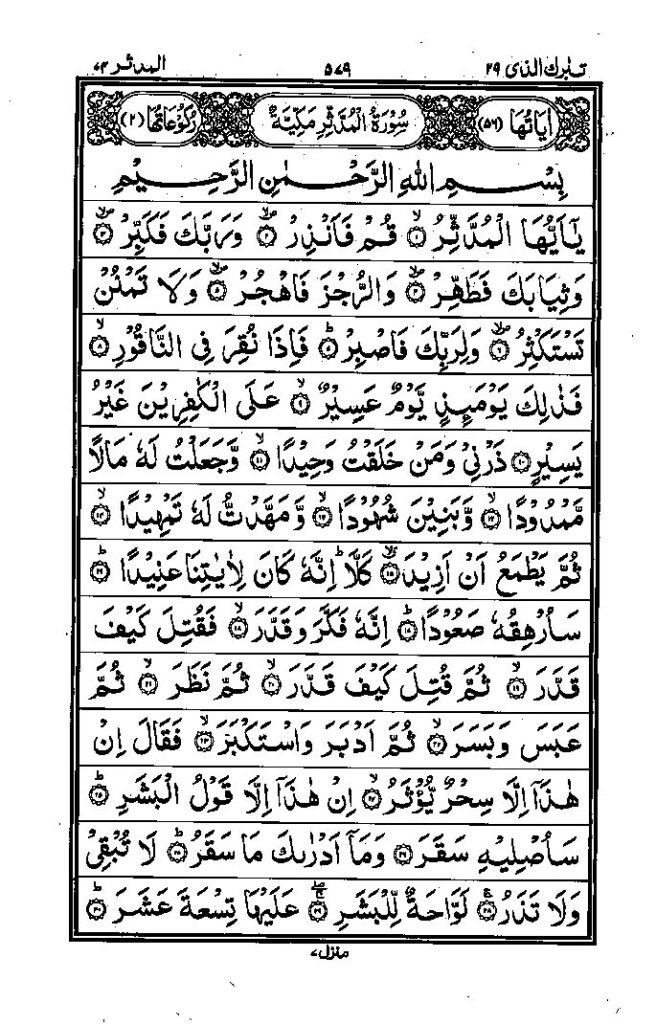 تبٰرك الذی ٢٩ ٥٧٩ المدثر ٧٤
اٰيَاتُهَا (٥٦) سُوْرَةُ الْمُدَّثِّرِ مَكِّيَّةٌ رُكُوْعَاتُهَا (٢)
بِسْمِ اللهِ الرَّحْمٰنِ الرَّحِيْمِ
يٰۤاَيُّهَا الْمُدَّثِّرُ ۙ﴿١﴾ قُمْ فَاَنْذِرْ ۪ۙ﴿٢﴾ وَرَبَّكَ فَكَبِّرْ ۪ۙ﴿٣﴾
وَثِيَابَكَ فَطَهِّرْ ۪ۙ﴿٤﴾ وَالرُّجْزَ فَاهْجُرْ ۪ۙ﴿٥﴾ وَلَا تَمْنُنْ
تَسْتَكْثِرُ ۪ۙ﴿٦﴾ وَلِرَبِّكَ فَاصْبِرْ ؕ﴿٧﴾ فَاِذَا نُقِرَ فِى النَّاقُوْرِ ۙ﴿٨﴾
فَذٰلِكَ يَوْمَئِذٍ يَّوْمٌ عَسِيْرٌ ۙ﴿٩﴾ عَلَى الْكٰفِرِيْنَ غَيْرُ
يَسِيْرٍ ﴿١٠﴾ ذَرْنِىْ وَمَنْ خَلَقْتُ وَحِيْدًا ۙ﴿١١﴾ وَّجَعَلْتُ لَهٗ مَالًا
مَّمْدُوْدًا ۙ﴿١٢﴾ وَّبَنِيْنَ شُهُوْدًا ۙ﴿١٣﴾ وَّمَهَّدْتُّ لَهٗ تَمْهِيْدًا ۙ﴿١٤﴾
ثُمَّ يَطْمَعُ اَنْ اَزِيْدَ ۙ﴿١٥﴾ كَلَّا ؕ اِنَّهٗ كَانَ لِاٰيٰتِنَا عَنِيْدًا ؕ﴿١٦﴾
سَاُرْهِقُهٗ صَعُوْدًا ؕ﴿١٧﴾ اِنَّهٗ فَكَّرَ وَقَدَّرَ ۙ﴿١٨﴾ فَقُتِلَ كَيْفَ
قَدَّرَ ۙ﴿١٩﴾ ثُمَّ قُتِلَ كَيْفَ قَدَّرَ ۙ﴿٢٠﴾ ثُمَّ نَظَرَ ۙ﴿٢١﴾ ثُمَّ
عَبَسَ وَبَسَرَ ۙ﴿٢٢﴾ ثُمَّ اَدْبَرَ وَاسْتَكْبَرَ ۙ﴿٢٣﴾ فَقَالَ اِنْ
هٰذَاۤ اِلَّا سِحْرٌ يُّؤْثَرُ ۙ﴿٢٤﴾ اِنْ هٰذَاۤ اِلَّا قَوْلُ الْبَشَرِ ؕ﴿٢٥﴾
سَاُصْلِيْهِ سَقَرَ ﴿٢٦﴾ وَمَاۤ اَدْرٰىكَ مَا سَقَرُ ؕ﴿٢٧﴾ لَا تُبْقِىْ
وَلَا تَذَرُ ۚ﴿٢٨﴾ لَوَّاحَةٌ لِّلْبَشَرِ ۚۖ﴿٢٩﴾ عَلَيْهَا تِسْعَةَ عَشَرَ ؕ﴿٣٠﴾
منزل ٧